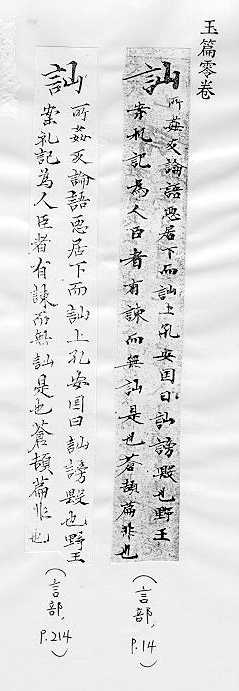 玉篇零卷
訕
所姦反論語惡居下而訕上孔安国曰訕謗毀也野王
案礼記為人臣者有諫而無訕是也蒼頡篇非也
（言部，P.14）
訕
所姦反論語惡居下而訕上孔安国曰訕謗毀也野王
案礼記為人臣者有諫而無訕是也蒼頡篇非也
（言部，P.214）